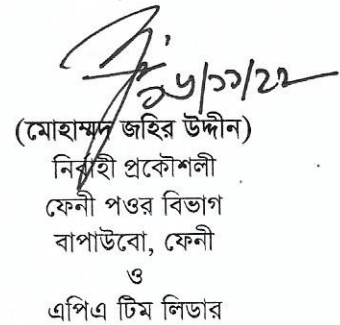 (মোহাম্মদ জহির উদ্দীন)
নির্বাহী প্রকৌশলী
ফেনী পওর বিভাগ
বাপাউবো, ফেনী
ও
এপিএ টিম লিডার